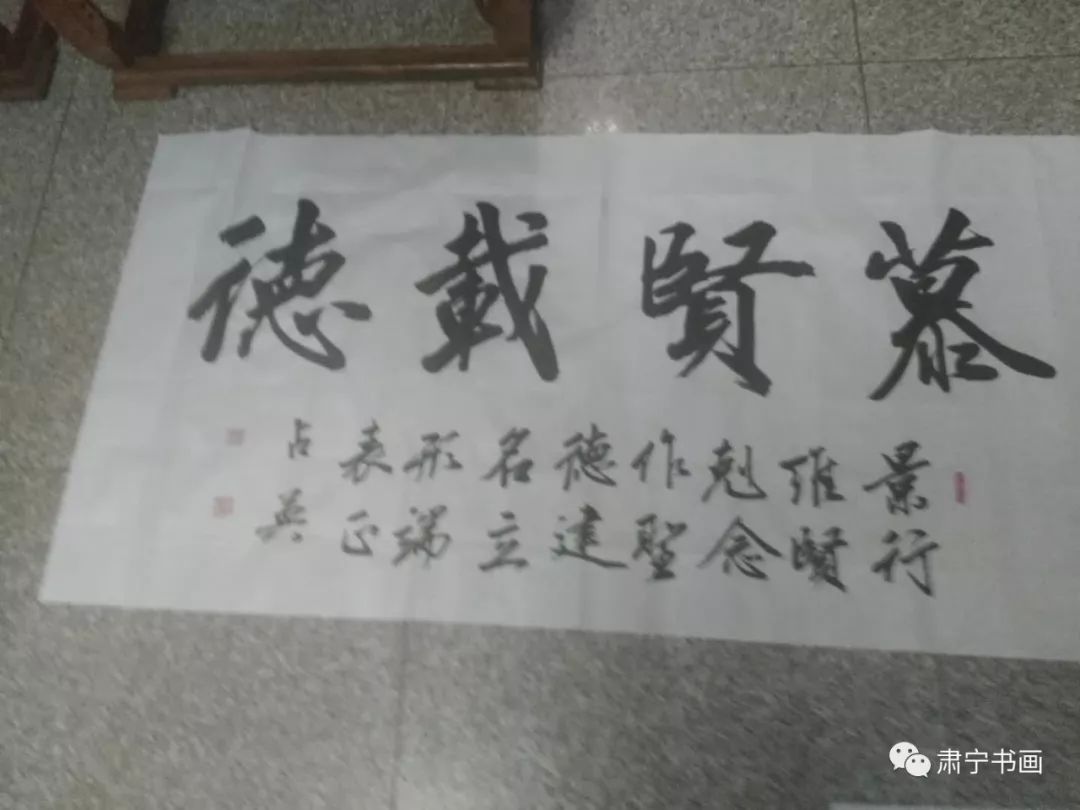 慕賢載德
景行
維賢
剋念
作聖
德建
名立
形端
表正
占英
肃宁书画